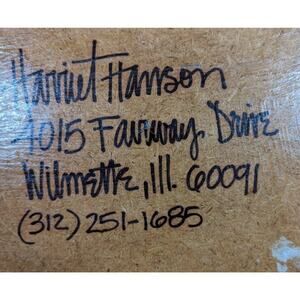 Harriet Hanson
4015 Fairway Drive
Wilmette, Ill. 60091
(312) 251-1685